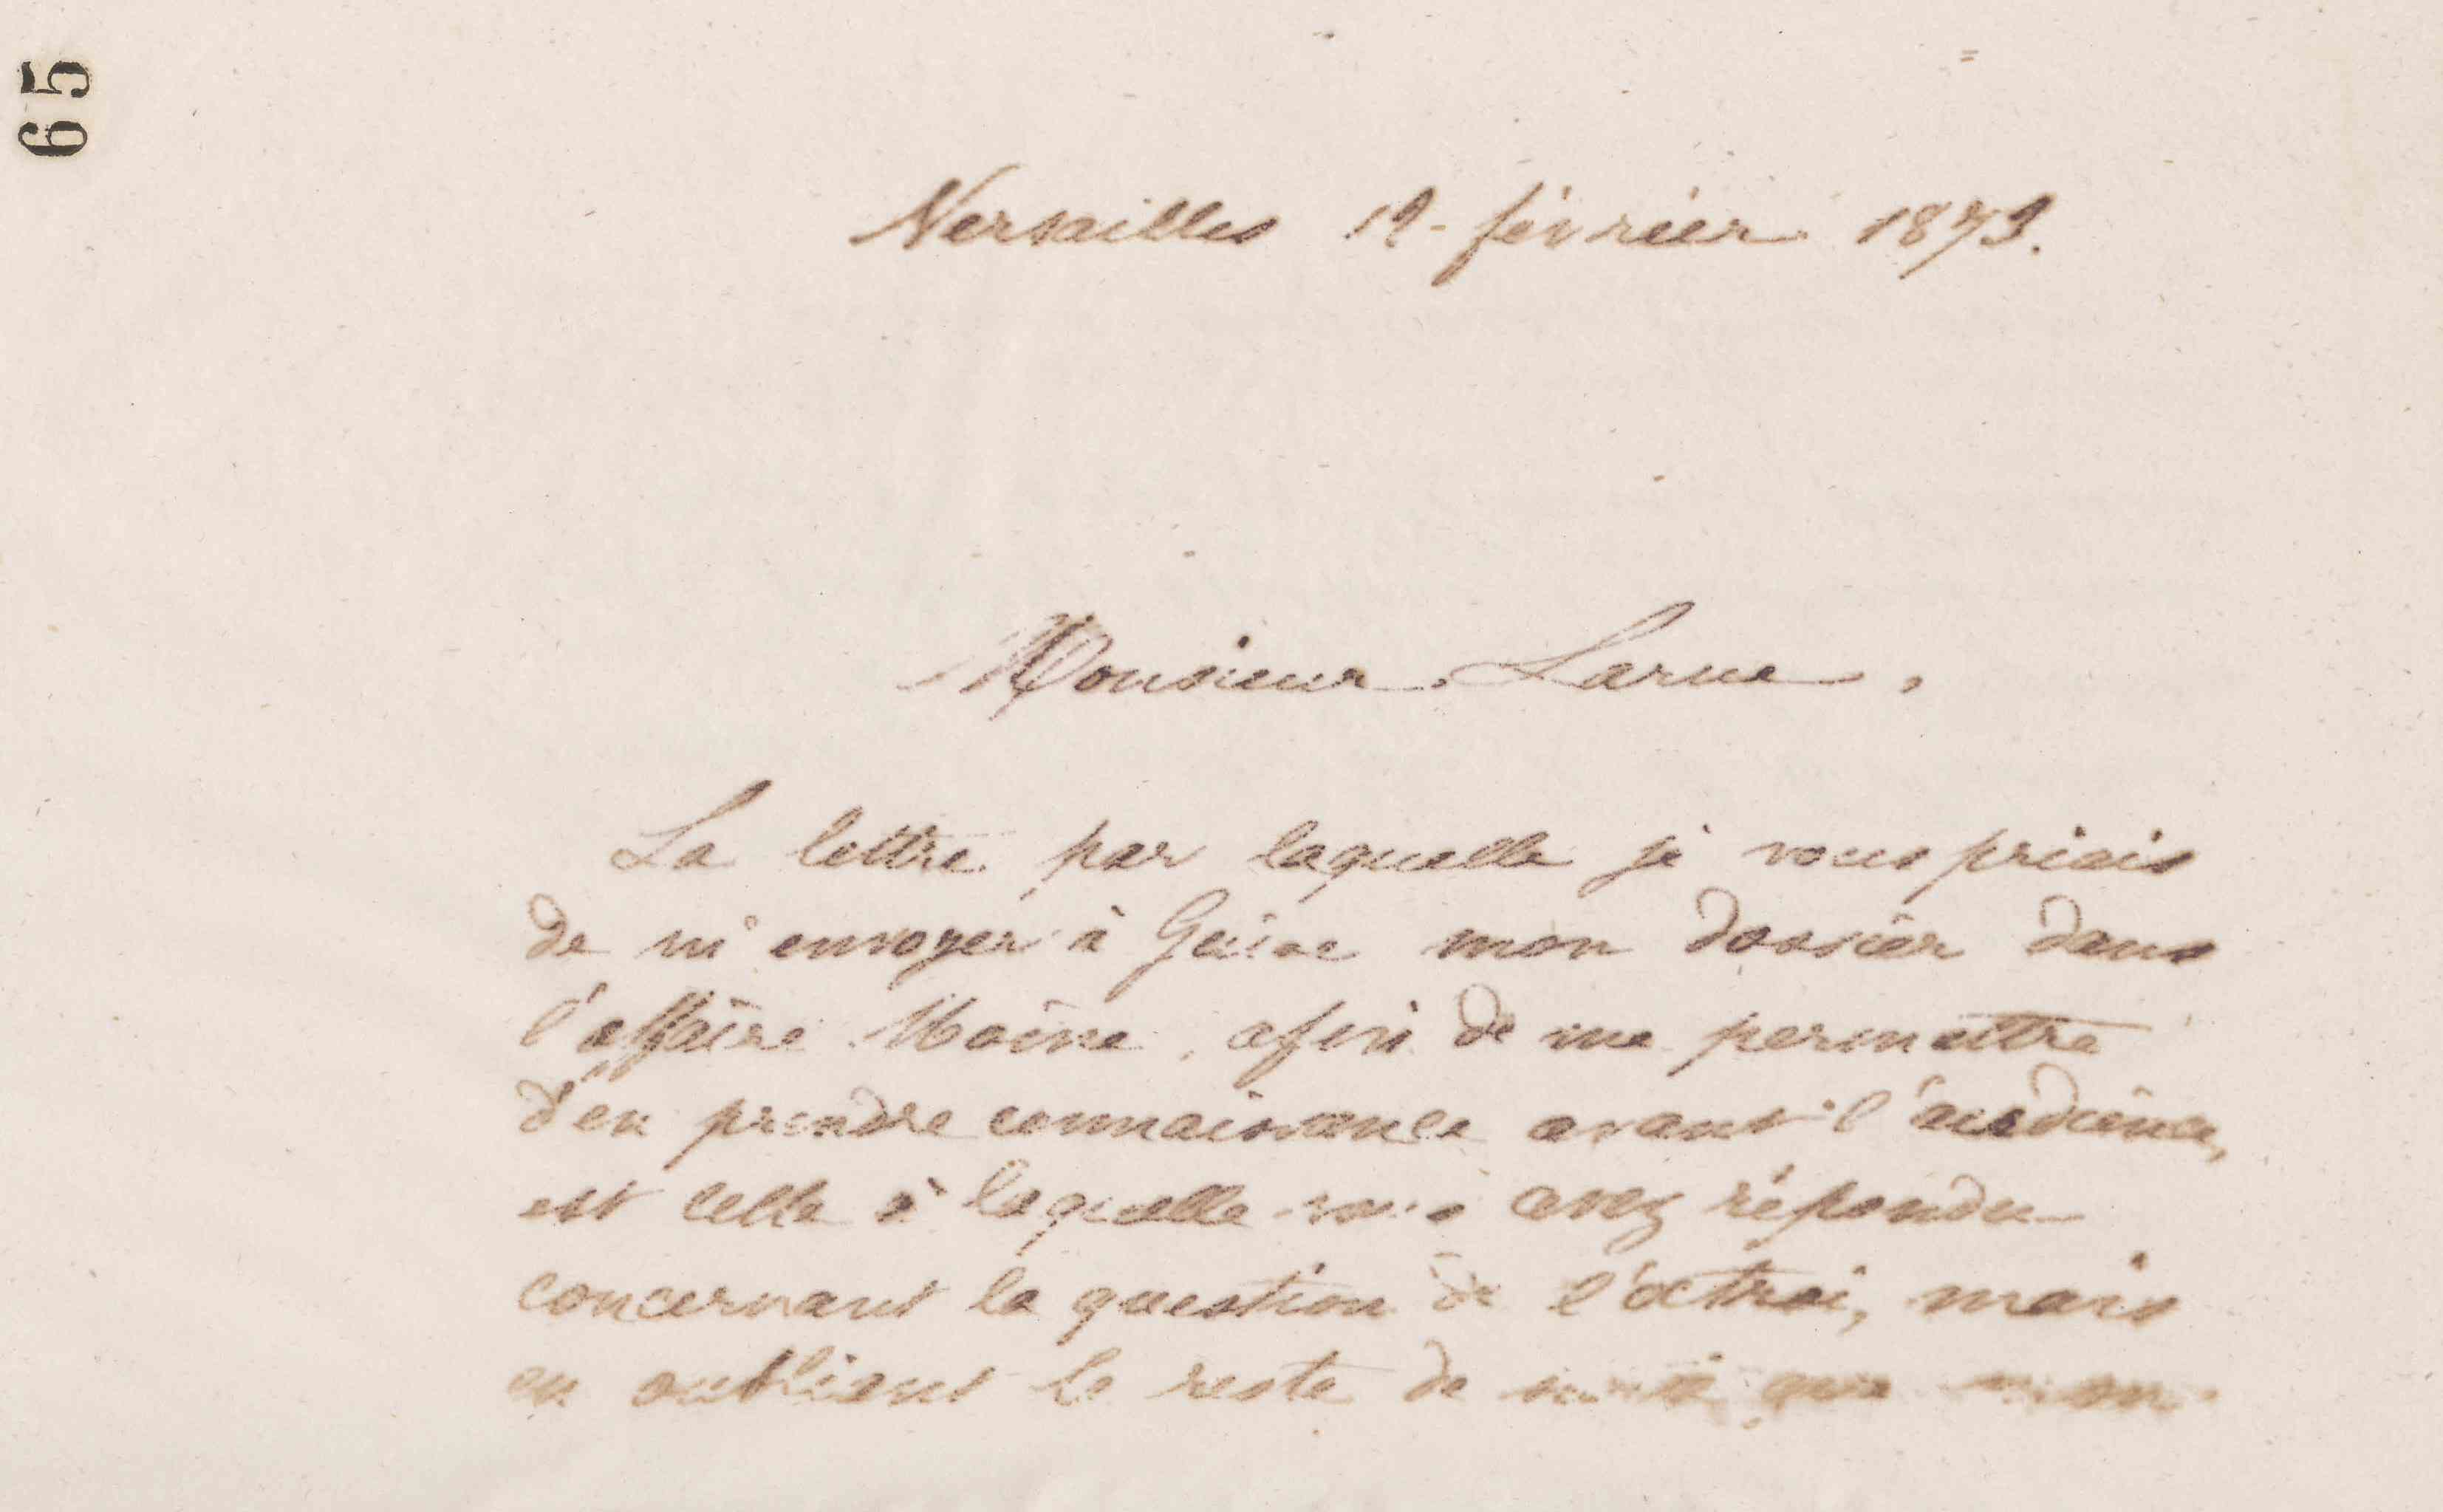 65
Versailles 19 février 1879.
Monsieur Larue,
La lettre par laquelle je vous priais
de m'envoyer à Guise mon dossier dans
l'affaire Moine, afin de me permettre
d'en prendre connaissance avant l'audience,
est celle à laquelle vous avez répondu
concernant la question de l'octroi, mais
en oubliant le reste de sorte que mon